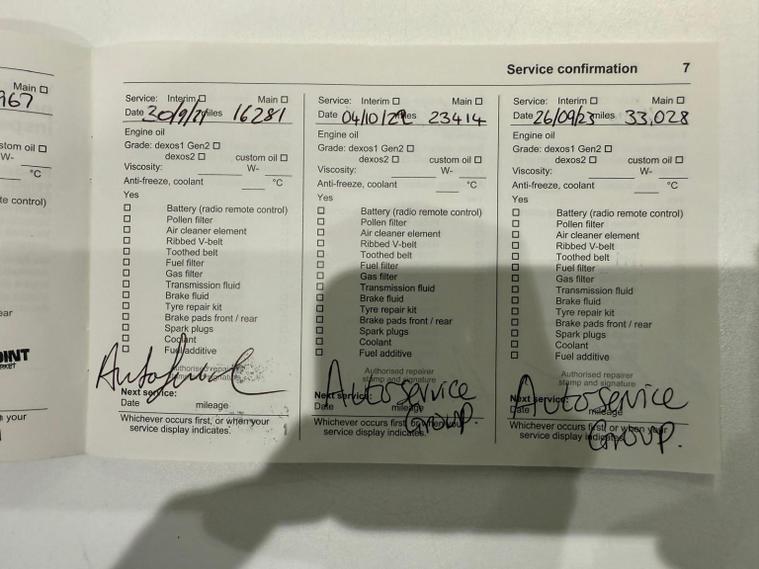 Service confirmation 7
Main ☐
967
stom oil ☐
W-
°C
te control)
ear
OINT
n your
Service: Interim ☐ Main ☐
Date 30/9/21 miles 16281
Engine oil
Grade: dexos1 Gen2 ☐
dexos2 ☐ custom oil ☐
Viscosity: W-
Anti-freeze, coolant °C
Yes
☐ Battery (radio remote control)
☐ Pollen filter
☐ Air cleaner element
☐ Ribbed V-belt
☐ Toothed belt
☐ Fuel filter
☐ Gas filter
☐ Transmission fluid
☐ Brake fluid
☐ Tyre repair kit
☐ Brake pads front / rear
☐ Spark plugs
☐ Coolant
☐ Fuel additive
Authorised repairer
stamp and signature
Next service:
Date mileage
Whichever occurs first, or when your
service display indicates.
Service: Interim ☐ Main ☐
Date 04/10/22 miles 23414
Engine oil
Grade: dexos1 Gen2 ☐
dexos2 ☐ custom oil ☐
Viscosity: W-
Anti-freeze, coolant °C
Yes
☐ Battery (radio remote control)
☐ Pollen filter
☐ Air cleaner element
☐ Ribbed V-belt
☐ Toothed belt
☐ Fuel filter
☐ Gas filter
☐ Transmission fluid
☐ Brake fluid
☐ Tyre repair kit
☐ Brake pads front / rear
☐ Spark plugs
☐ Coolant
☐ Fuel additive
Authorised repairer
stamp and signature
AutoService
Group.
Next service:
Date mileage
Whichever occurs first, or when your
service display indicates.
Service: Interim ☐ Main ☐
Date 26/09/23 miles 33,028
Engine oil
Grade: dexos1 Gen2 ☐
dexos2 ☐ custom oil ☐
Viscosity: W-
Anti-freeze, coolant °C
Yes
☐ Battery (radio remote control)
☐ Pollen filter
☐ Air cleaner element
☐ Ribbed V-belt
☐ Toothed belt
☐ Fuel filter
☐ Gas filter
☐ Transmission fluid
☐ Brake fluid
☐ Tyre repair kit
☐ Brake pads front / rear
☐ Spark plugs
☐ Coolant
☐ Fuel additive
Authorised repairer
stamp and signature
AutoService
Group.
Next service:
Date mileage
Whichever occurs first, or when your
service display indicates.